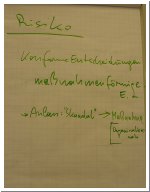 Risiko
Konforme Entscheidungen
maßnahmenförmige
E
→ Anlass: "Skandal" → Maßnahme